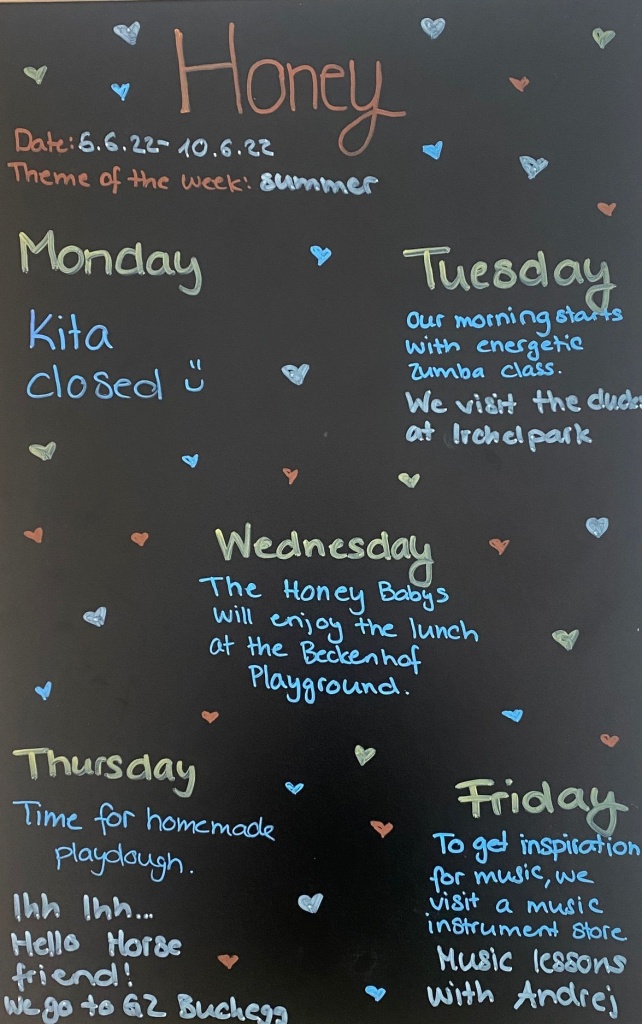 Honey
Date: 6.6.22- 10.6.22
Theme of the week: summer
Monday
Kita
closed
Tuesday
Our morning starts
with energetic
Zumba class.
We visit the ducks
at Irchelpark
Wednesday
The Honey Babys
will enjoy the lunch
at the Beckenhof
Playground.
Thursday
Time for homemade
playdough.
Ihh Ihh...
Hello Horse
friend!
We go to GZ Buchegg
Friday
To get inspiration
for music, we
visit a music
instrument store
Music lessons
with Andrej